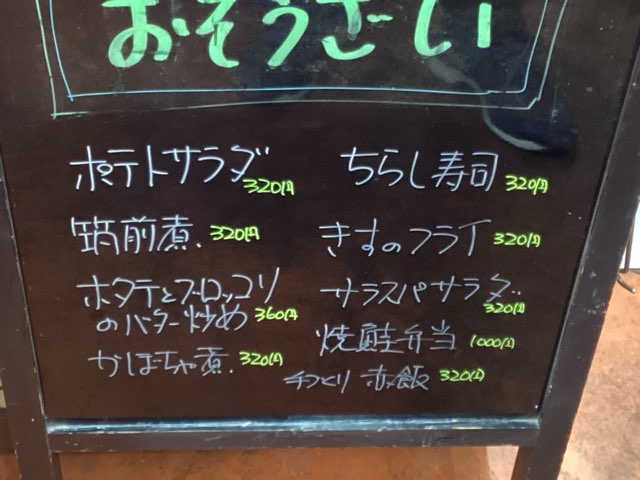 おそうざい
ポテトサラダ 320円
筑前煮 320円
ホタテとブロッコリ
のバター炒め 360円
かぼちゃ煮 320円
ちらし寿司 320円
きすのフライ 320円
サラスパサラダ 320円
焼鮭弁当 1000円
手づくり 赤飯 320円